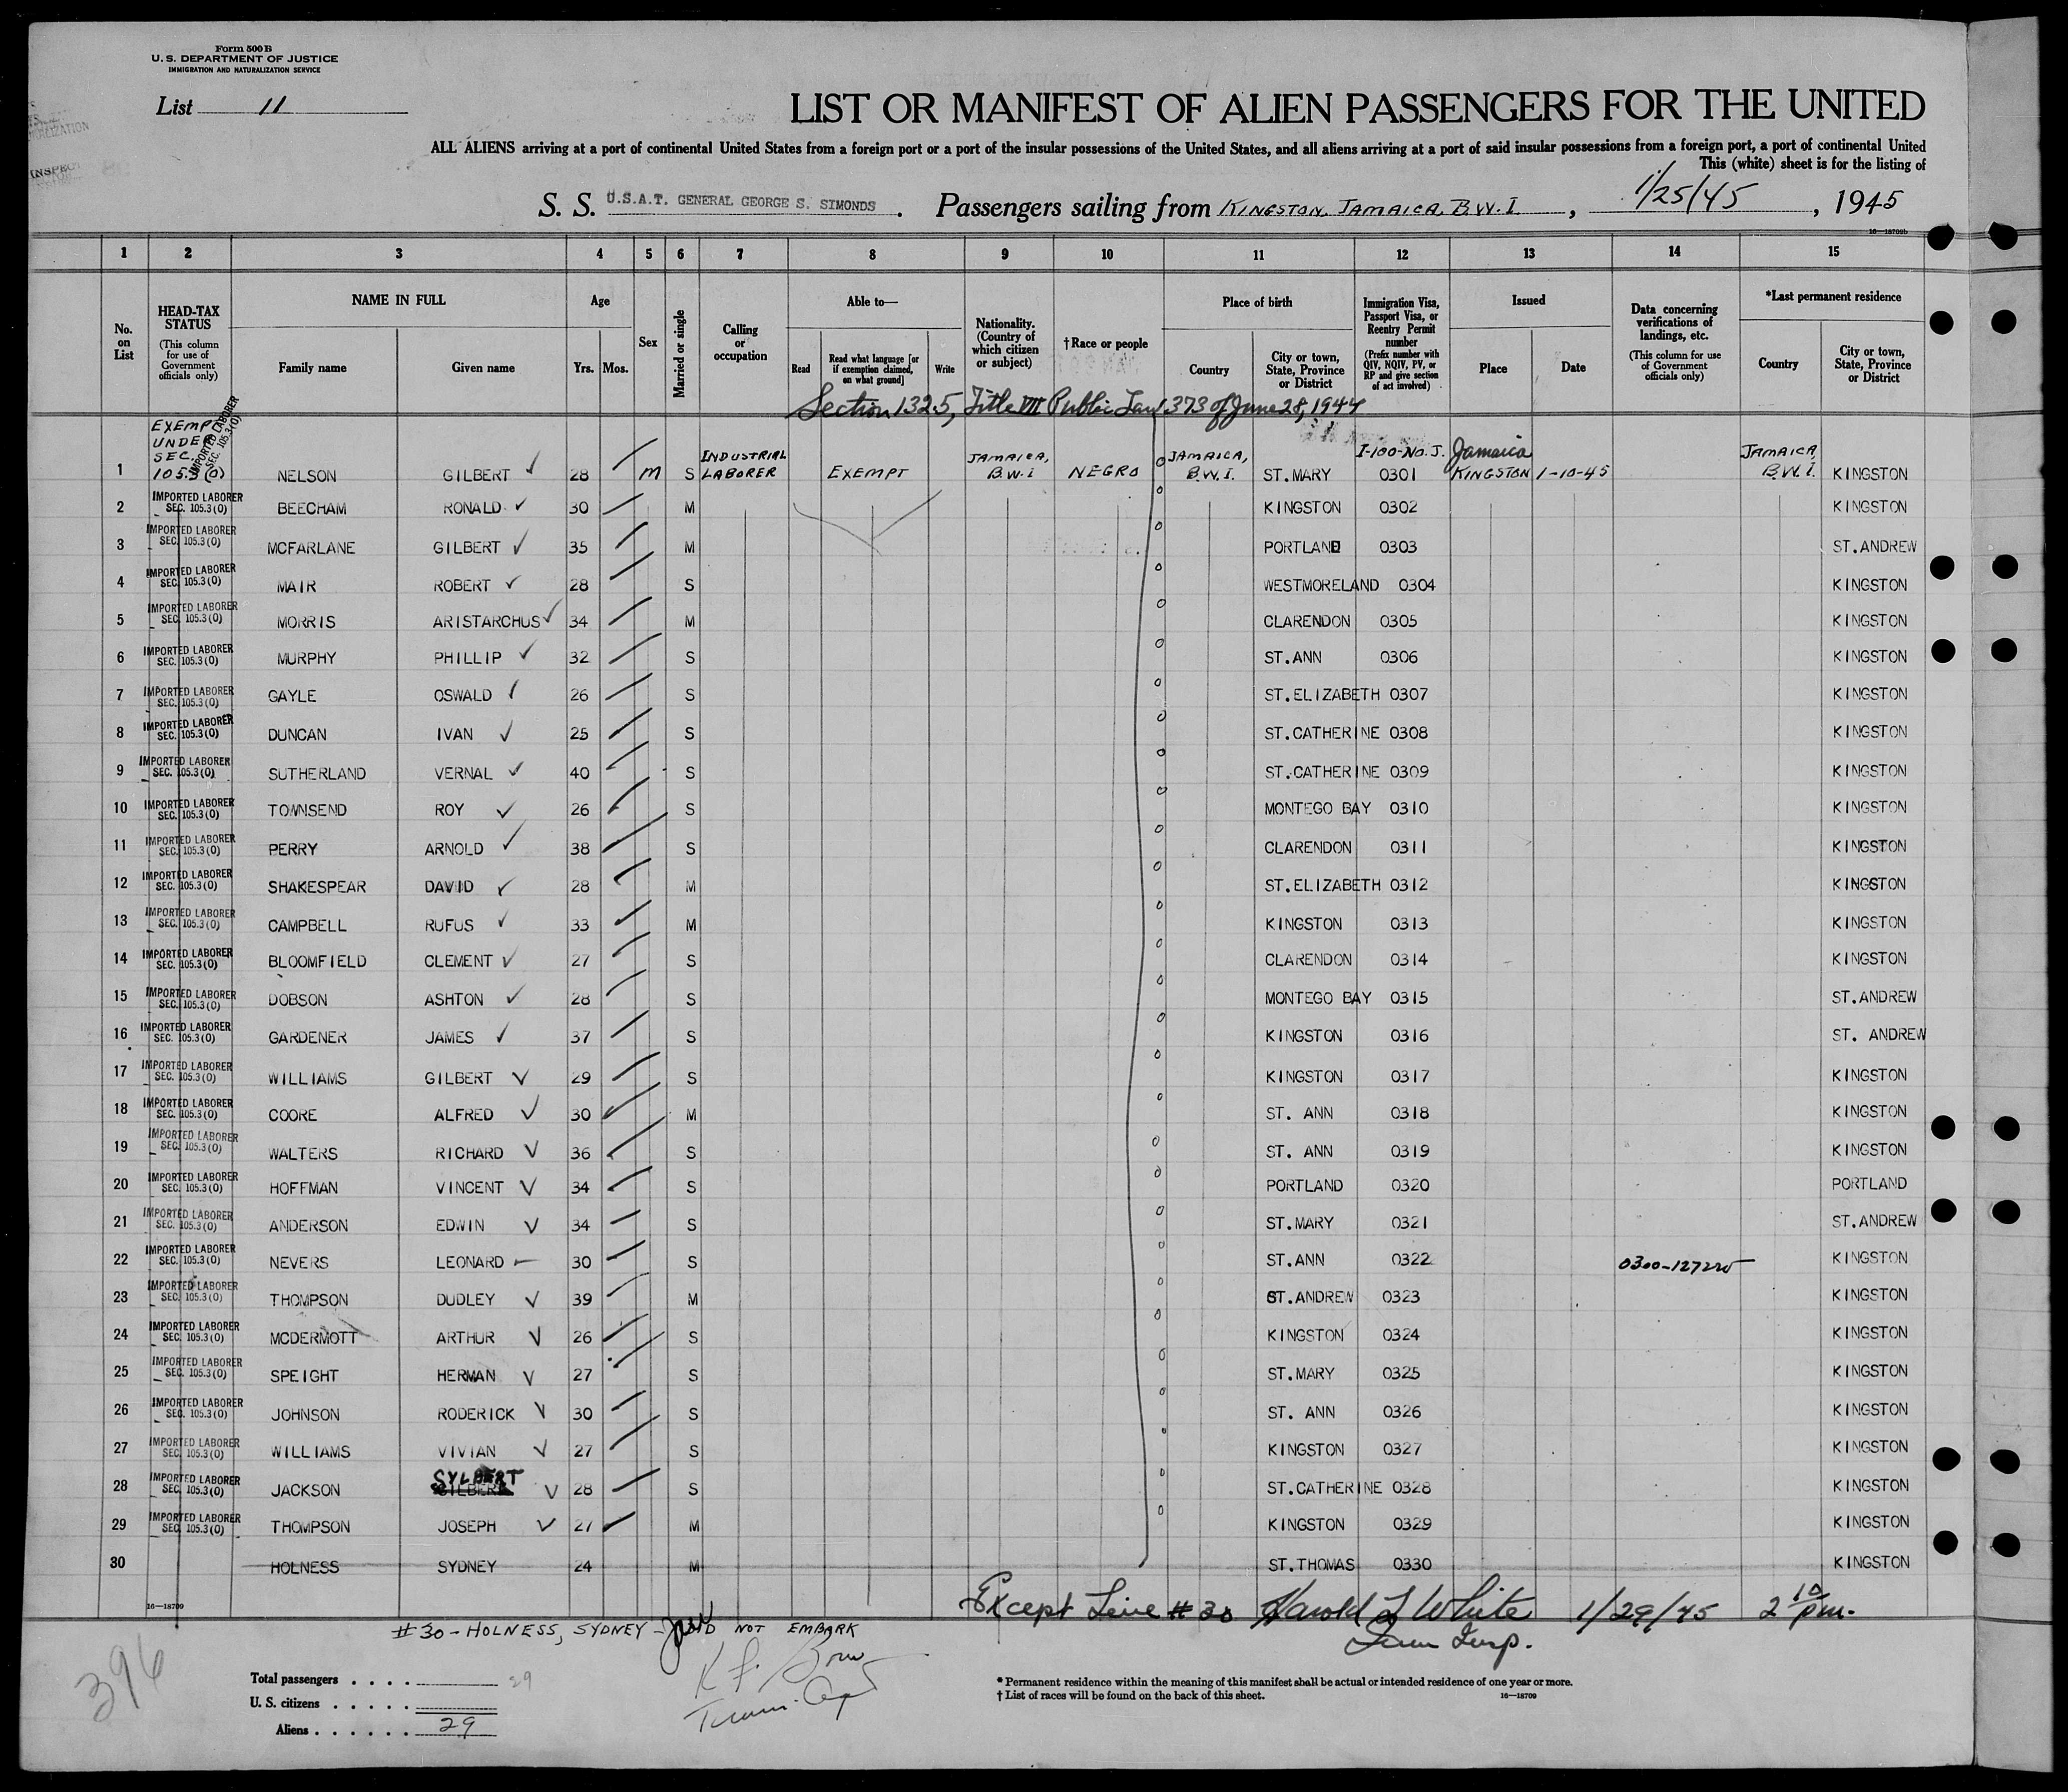 Form 500 B
U. S. DEPARTMENT OF JUSTICE
IMMIGRATION AND NATURALIZATION SERVICE
List 11
LIST OR MANIFEST OF ALIEN PASSENGERS FOR THE UNITED
ALL ALIENS arriving at a port of continental United States from a foreign port or a port of the insular possessions of the United States, and all aliens arriving at a port of said insular possessions from a foreign port, a port of continental United
This (white) sheet is for the listing of
S. S. U.S.A.T. GENERAL GEORGE S. SIMONDS . Passengers sailing from KINGSTON, JAMAICA, B.W.I. , 1/25/45 , 1945
16—18709b
1 2 3 4 5 6 7 8 9 10 11 12 13 14 15
No. on List
HEAD-TAX STATUS
(This column for use of Government officials only)
NAME IN FULL
Family name Given name
Age
Yrs. Mos.
Sex
Married or single
Calling or occupation
Able to—
Read
Read what language [or if exemption claimed, on what ground]
Write
Nationality. (Country of which citizen or subject)
†Race or people
Place of birth
Country
City or town, State, Province or District
Immigration Visa, Passport Visa, or Reentry Permit number
(Prefix number with QIV, NQIV, PV, or RP and give section of act involved)
Issued
Place Date
Data concerning verifications of landings, etc.
(This column for use of Government officials only)
*Last permanent residence
Country
City or town, State, Province or District
Section 132.5, Title VIII Public Law 373 of June 28, 1944
1 EXEMPT UNDER SEC. 105.3 (O) IMPORTED LABORER SEC. 105.3(O) NELSON GILBERT 28 M S INDUSTRIAL LABORER EXEMPT JAMAICA, B.W.I NEGRO JAMAICA, B.W.I. ST.MARY I-100-No. J. 0301 Jamaica KINGSTON 1-10-45 JAMAICA, B.W.I. KINGSTON
2 IMPORTED LABORER SEC. 105.3(O) BEECHAM RONALD 30 M KINGSTON 0302 KINGSTON
3 IMPORTED LABORER SEC. 105.3(O) MCFARLANE GILBERT 35 M PORTLAND 0303 ST.ANDREW
4 IMPORTED LABORER SEC. 105.3(O) MAIR ROBERT 28 S WESTMORELAND 0304 KINGSTON
5 IMPORTED LABORER SEC. 105.3(O) MORRIS ARISTARCHUS 34 M CLARENDON 0305 KINGSTON
6 IMPORTED LABORER SEC. 105.3(O) MURPHY PHILLIP 32 S ST.ANN 0306 KINGSTON
7 IMPORTED LABORER SEC. 105.3(O) GAYLE OSWALD 26 S ST.ELIZABETH 0307 KINGSTON
8 IMPORTED LABORER SEC. 105.3(O) DUNCAN IVAN 25 S ST.CATHERINE 0308 KINGSTON
9 IMPORTED LABORER SEC. 105.3(O) SUTHERLAND VERNAL 40 S ST.CATHERINE 0309 KINGSTON
10 IMPORTED LABORER SEC. 105.3(O) TOWNSEND ROY 26 S MONTEGO BAY 0310 KINGSTON
11 IMPORTED LABORER SEC. 105.3(O) PERRY ARNOLD 38 S CLARENDON 0311 KINGSTON
12 IMPORTED LABORER SEC. 105.3(O) SHAKESPEAR DAVID 28 M ST.ELIZABETH 0312 KINGSTON
13 IMPORTED LABORER SEC. 105.3(O) CAMPBELL RUFUS 33 M KINGSTON 0313 KINGSTON
14 IMPORTED LABORER SEC. 105.3(O) BLOOMFIELD CLEMENT 27 S CLARENDON 0314 KINGSTON
15 IMPORTED LABORER SEC. 105.3(O) DOBSON ASHTON 28 S MONTEGO BAY 0315 ST.ANDREW
16 IMPORTED LABORER SEC. 105.3(O) GARDENER JAMES 37 S KINGSTON 0316 ST. ANDREW
17 IMPORTED LABORER SEC. 105.3(O) WILLIAMS GILBERT 29 S KINGSTON 0317 KINGSTON
18 IMPORTED LABORER SEC. 105.3(O) COORE ALFRED 30 M ST. ANN 0318 KINGSTON
19 IMPORTED LABORER SEC. 105.3(O) WALTERS RICHARD 36 S ST. ANN 0319 KINGSTON
20 IMPORTED LABORER SEC. 105.3(O) HOFFMAN VINCENT 34 S PORTLAND 0320 PORTLAND
21 IMPORTED LABORER SEC. 105.3(O) ANDERSON EDWIN 34 S ST.MARY 0321 ST.ANDREW
22 IMPORTED LABORER SEC. 105.3(O) NEVERS LEONARD 30 S ST.ANN 0322 KINGSTON
23 IMPORTED LABORER SEC. 105.3(O) THOMPSON DUDLEY 39 M ST.ANDREW 0323 KINGSTON
24 IMPORTED LABORER SEC. 105.3(O) MCDERMOTT ARTHUR 26 S KINGSTON 0324 KINGSTON
25 IMPORTED LABORER SEC. 105.3(O) SPEIGHT HERMAN 27 S ST.MARY 0325 KINGSTON
26 IMPORTED LABORER SEC. 105.3(O) JOHNSON RODERICK 30 S ST. ANN 0326 KINGSTON
27 IMPORTED LABORER SEC. 105.3(O) WILLIAMS VIVIAN 27 S KINGSTON 0327 KINGSTON
28 IMPORTED LABORER SEC. 105.3(O) JACKSON SYLBERT 28 S ST.CATHERINE 0328 KINGSTON
29 IMPORTED LABORER SEC. 105.3(O) THOMPSON JOSEPH 27 M KINGSTON 0329 KINGSTON
30 HOLNESS SYDNEY 24 M ST.THOMAS 0330 KINGSTON
16—18709
Except Line # 30 Harold L White 1/29/45 2 10 pm.
Imm Insp.
#30 - HOLNESS, SYDNEY - DID NOT EMBARK
396
Total passengers . . . . 29
U. S. citizens . . . . .
Aliens . . . . . . 29
* Permanent residence within the meaning of this manifest shall be actual or intended residence of one year or more.
† List of races will be found on the back of this sheet. 16—18709